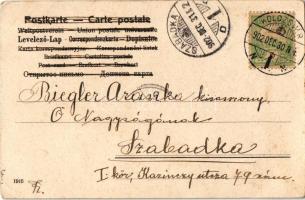 Postkarte — Carte postale
Weltpostverein — Union postale universelle
Levelező-Lap — Correspondenzkarte — Dopisnice
Karta korespondencyjna — Korespondenční lístek
Briefkaart — Cartolina postale
Post card — Brefkort — Brevkort
Открытое письмо — Дописна карта
SZABADKA
KOLOZSVÁR
902 DEC 30
Biegler Aranka kisasszony
Ő Nagyságának
Szabadka
I. kör, Kazinczy utsza 79 szám.
1910